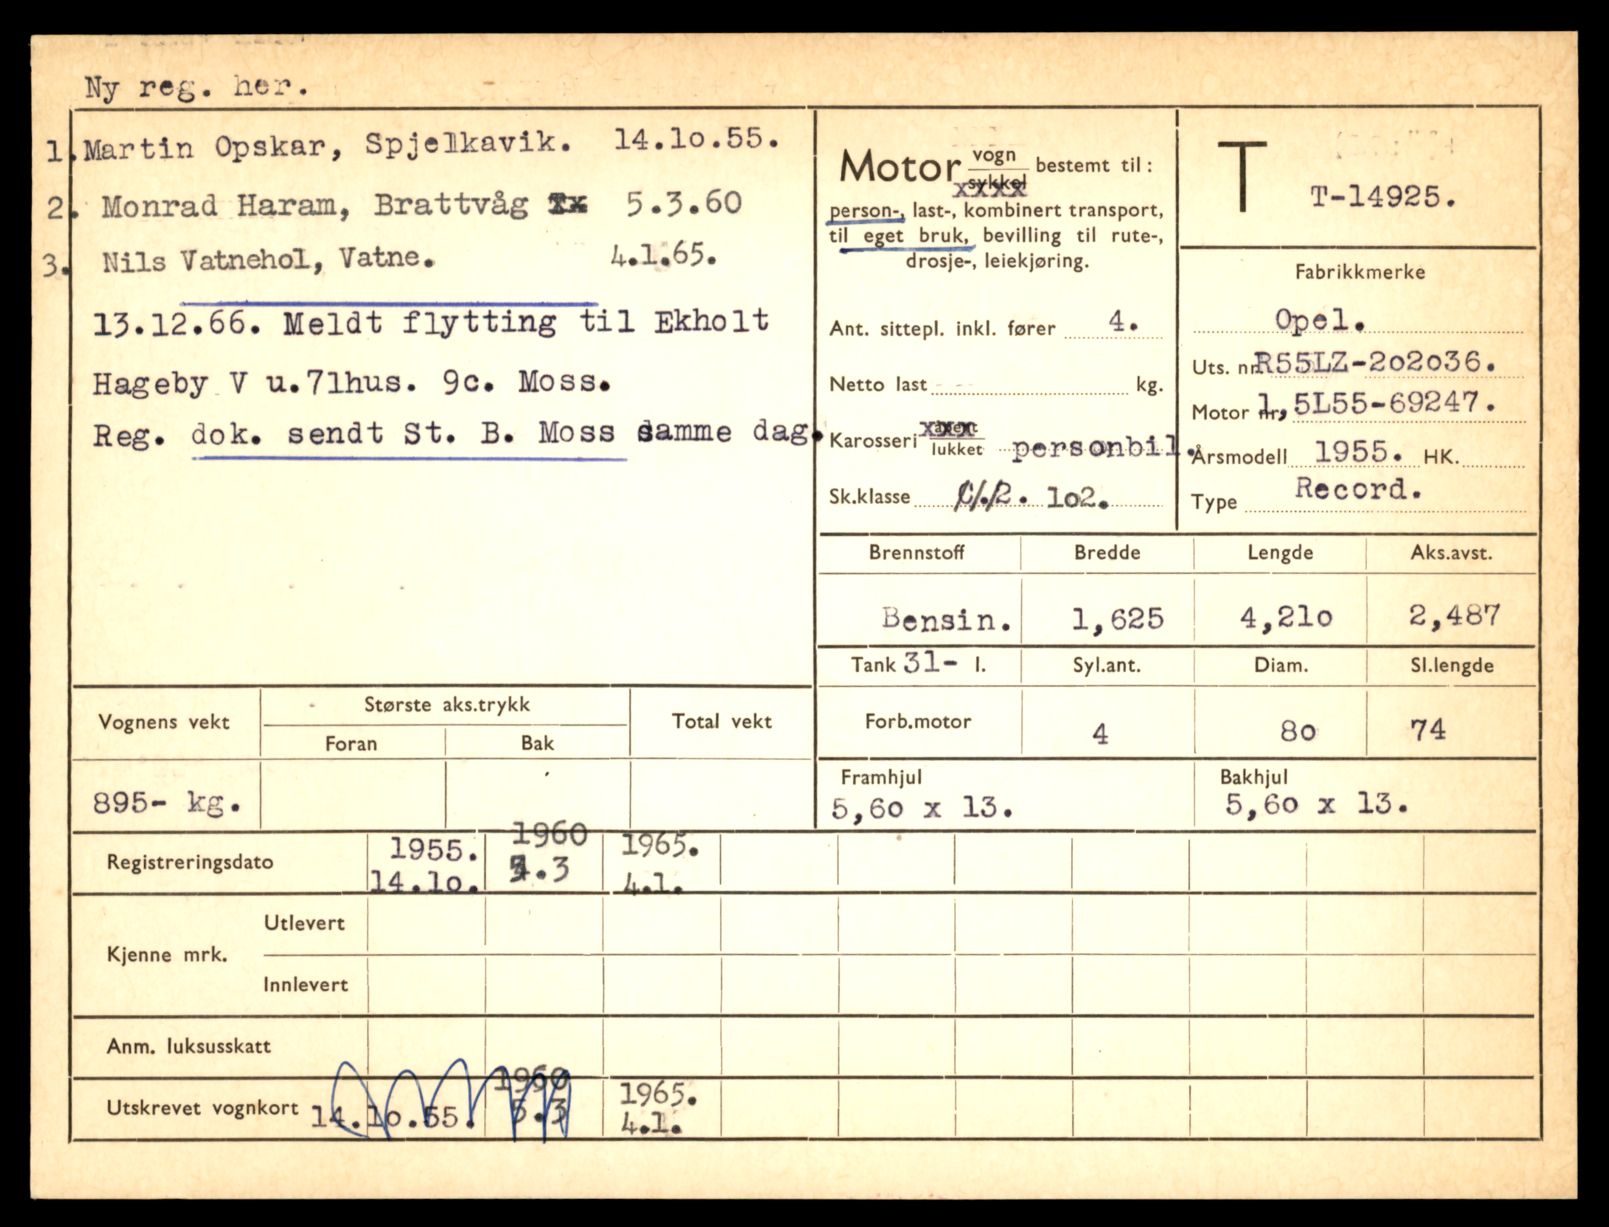 Ny reg. her.
1. Martin Opskar, Spjelkavik. 14.10.55.
2. Monrad Haram, Brattvåg 5.3.60
3. Nils Vatnehol, Vatne. 4.1.65.
13.12.66. Meldt flytting til Ekholt
Hageby V u.71hus. 9c. Moss.
Reg. dok. sendt St. B. Moss samme dag.
Motor vogn sykkel bestemt til:
person-, last-, kombinert transport,
til eget bruk, bevilling til rute-,
drosje-, leiekjøring.
Ant. sittepl. inkl. fører 4.
Netto last kg.
Karosseri åpent lukket personbil.
Sk.klasse 102.
T T-14925.
Fabrikkmerke
Opel.
Uts. nr. R55LZ-202036.
Motor nr. 1,5L55-69247.
Årsmodell 1955. HK.
Type Record.
Brennstoff Bredde Lengde Aks.avst.
Bensin. 1,625 4,210 2,487
Tank 31- l. Syl.ant. Diam. Sl.lengde
Forb.motor 4 80 74
Framhjul Bakhjul
5,60 x 13. 5,60 x 13.
Vognens vekt Største aks.trykk Total vekt
Foran Bak
895- kg.
Registreringsdato 1955. 1960 1965.
14.10. 5.3 4.1.
Kjenne mrk. Utlevert
Innlevert
Anm. luksusskatt
Utskrevet vognkort 14.10.55. 1960 1965.
5.3 4.1.